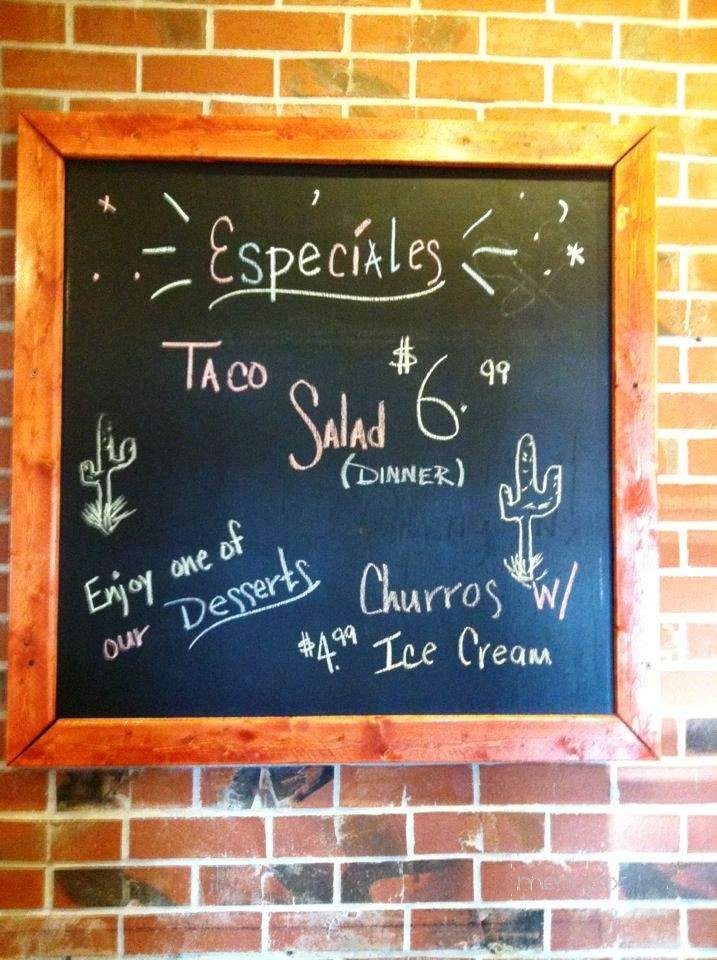 Especíales
Taco
Salad $6.99
(Dinner)
Enjoy one of
our Desserts
Churros w/
$4.99 Ice Cream